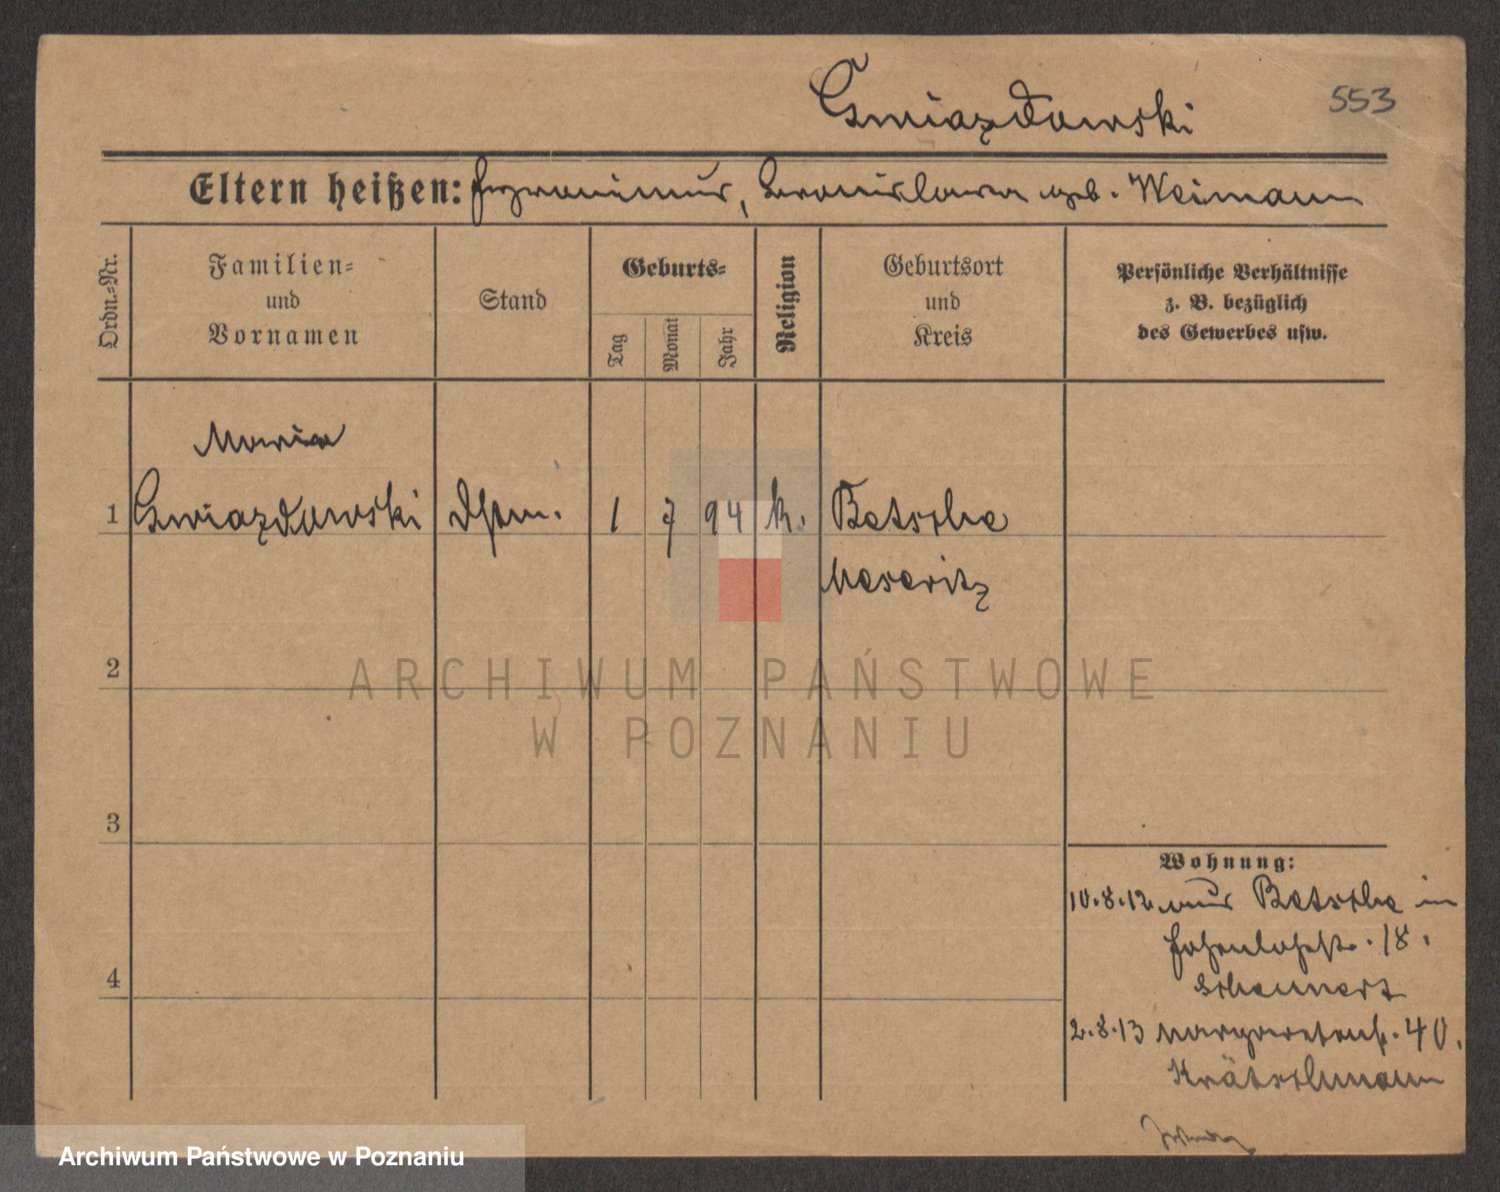 Gwiazdowski
553
Eltern heißen: Hyronimus, Bronislawa geb. Weimann
Ordn.-Nr.
Familien-
und
Vornamen
Stand
Geburts-
Tag
Monat
Jahr
Religion
Geburtsort
und
Kreis
Persönliche Verhältnisse
z. B. bezüglich
des Gewerbes usw.
Maria
1 Gwiazdowski Dstm. 1 7 94 k. Betsche
Meseritz
2
ARCHIWUM PAŃSTWOWE
W POZNANIU
3
Wohnung:
10.8.12 aus Betsche in
Hohenlohestr. 18.
Schennert
4
2.8.13 Margaretenstr. 40.
Krätschmann
Archiwum Państwowe w Poznaniu